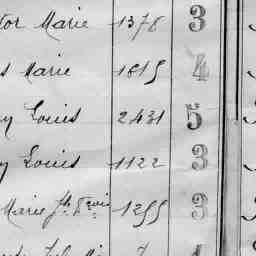 tor Marie 1376 3
s Marie 1815 4
y Louis 2431 5
y Louis 1122 3
Marie 1255 3